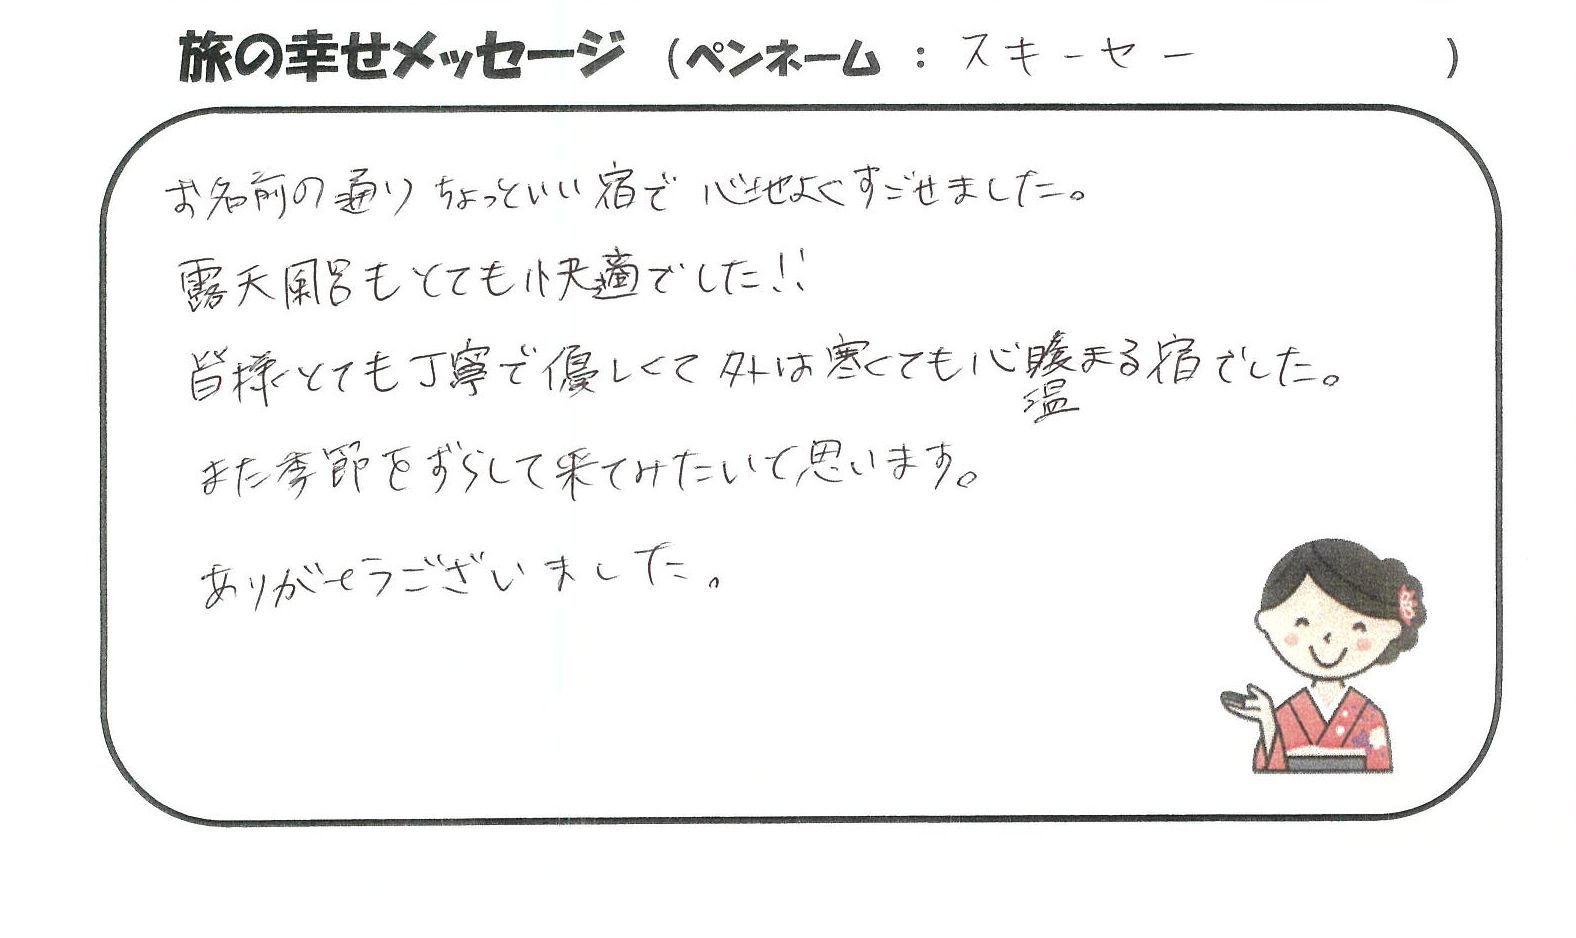 旅の幸せメッセージ (ペンネーム : スキーセー )
お名前の通りちょっといい宿で 心地よくすごせました。
露天風呂もとても快適でした!!
皆様とても丁寧で優しくて 外は寒くても心暖まる宿でした。
温
また季節をずらして来てみたいて思います。
ありがそうございました。